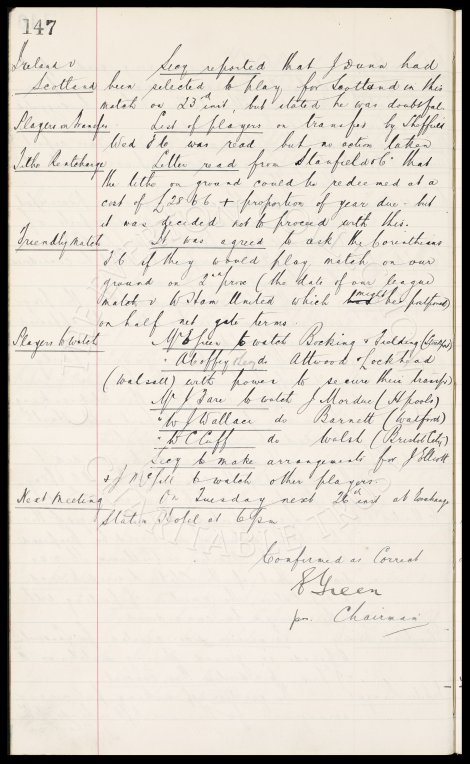 147
Ireland v Secy reported that J Dunn had
Scotland been selected to play for Scotland in this
match on 23rd inst, but stated he was doubtful.
Players on transfer List of players on transfer by Sheffield
Wed F.C was read but no action taken
Tithe Rentcharge Letter read from Stanfield & Co that
the tithe on ground could be redeemed at a
cost of £28 + proportion of year due - but
it was decided not to proceed with this.
Friendly match It was agreed to ask the Corinthians
F.C if they would play match on our
ground on 2nd prox (the date of our league
match v W Ham United which might be postponed)
on half net gate terms.
Players to watch Mr E Green to watch Bocking &
" A Coffey do Attwood & Lockhead
(Walsall) with power to secure their transfer
Mr J Fare to watch J Mordue (Hpools)
" W J Wallace do Barnett (Watford)
" W C Cuff do Walsh (Bristol City)
Secy to make arrangements for J Elliott
& J to watch other players.
Next Meeting On Tuesday next 26th inst at Exchange
Station Hotel at 6 pm
Confirmed as Correct
E Green
pro. Chairman